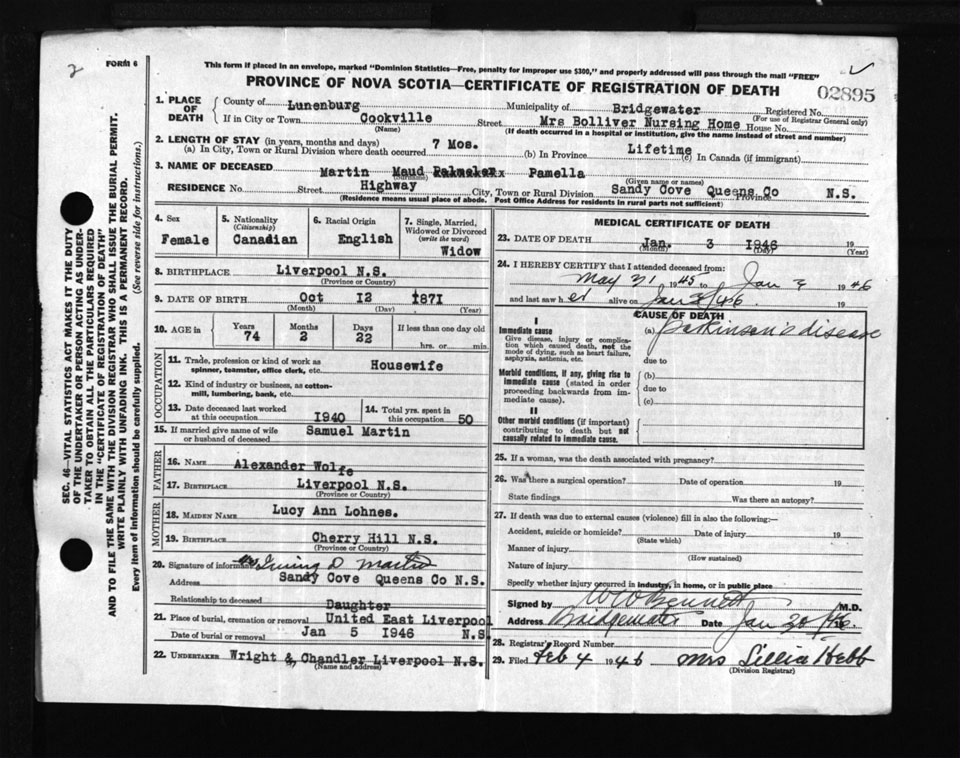 2
FORM 6
This form if placed in an envelope, marked "Dominion Statistics—Free, penalty for improper use $300," and properly addressed will pass through the mail "FREE"
PROVINCE OF NOVA SCOTIA—CERTIFICATE OF REGISTRATION OF DEATH
02895
1. PLACE OF DEATH
County of Lunenburg Municipality of Bridgewater Registered No.
(For use of Registrar General only)
If in City or Town Cookville Street Mrs Bolliver Nursing Home House No.
(Name) (If death occurred in a hospital or institution, give the name instead of street and number)
2. LENGTH OF STAY (in years, months and days)
(a) In City, Town or Rural Division where death occurred 7 Mos. (b) In Province Lifetime (c) In Canada (if immigrant)
3. NAME OF DECEASED Martin Maud Pamella
(Surname) (Given name or names)
RESIDENCE No. Street Highway City, Town or Rural Division Sandy Cove Queens Co Province N.S.
(Residence means usual place of abode. Post Office Address for residents in rural parts not sufficient)
4. Sex
Female
5. Nationality (Citizenship)
Canadian
6. Racial Origin
English
7. Single, Married, Widowed or Divorced (write the word)
Widow
8. BIRTHPLACE Liverpool N.S.
(Province or Country)
9. DATE OF BIRTH Oct 12 1871
(Month) (Day) (Year)
10. AGE in
Years Months Days If less than one day old
74 2 22 hrs. or min.
OCCUPATION
11. Trade, profession or kind of work as spinner, teamster, office clerk, etc. Housewife
12. Kind of industry or business, as cotton-mill, lumbering, bank, etc.
13. Date deceased last worked at this occupation 1940
14. Total yrs. spent in this occupation 50
15. If married give name of wife or husband of deceased Samuel Martin
FATHER
16. NAME Alexander Wolfe
17. BIRTHPLACE Liverpool N.S.
(Province or Country)
MOTHER
18. MAIDEN NAME Lucy Ann Lohnes.
19. BIRTHPLACE Cherry Hill N.S.
(Province or Country)
20. Signature of informant Mrs Irving D Martin
Address Sandy Cove Queens Co N.S.
Relationship to deceased Daughter
21. Place of burial, cremation or removal United East Liverpool
Date of burial or removal Jan 5 1946 N.S.
22. UNDERTAKER Wright & Chandler Liverpool N.S.
(Name and address)
MEDICAL CERTIFICATE OF DEATH
23. DATE OF DEATH Jan. 3 1946 19
(Month) (Day) (Year)
24. I HEREBY CERTIFY that I attended deceased from:
May 31 1945 to Jan 3 1946
and last saw her alive on Jan 3/46 19
CAUSE OF DEATH
I
Immediate cause
Give disease, injury or complication which caused death, not the mode of dying, such as heart failure, asphyxia, asthenia, etc.
(a) Parkinson's disease
due to
Morbid conditions, if any, giving rise to immediate cause (stated in order proceeding backwards from immediate cause).
(b)
due to
(c)
II
Other morbid conditions (if important) contributing to death but not causally related to immediate cause.
25. If a woman, was the death associated with pregnancy?
26. Was there a surgical operation? Date of operation 19
State findings Was there an autopsy?
27. If death was due to external causes (violence) fill in also the following:—
Accident, suicide or homicide? Date of injury 19
(State which)
Manner of injury
(How sustained)
Nature of injury
Specify whether injury occurred in industry, in home, or in public place
Signed by W W Bennett M.D.
Address Bridgewater Date Jan 30/46
28. Registrar's Record Number
29. Filed Feb 4 1946 Mrs Lillia Hebb
(Division Registrar)
SEC. 46—VITAL STATISTICS ACT MAKES IT THE DUTY
OF THE UNDERTAKER OR PERSON ACTING AS UNDER-
TAKER TO OBTAIN ALL THE PARTICULARS REQUIRED
IN THE "CERTIFICATE OF REGISTRATION OF DEATH"
AND TO FILE THE SAME WITH THE DIVISION REGISTRAR WHO SHALL ISSUE THE BURIAL PERMIT.
WRITE PLAINLY WITH UNFADING INK. THIS IS A PERMANENT RECORD.
Every item of information should be carefully supplied. (See reverse side for instructions.)